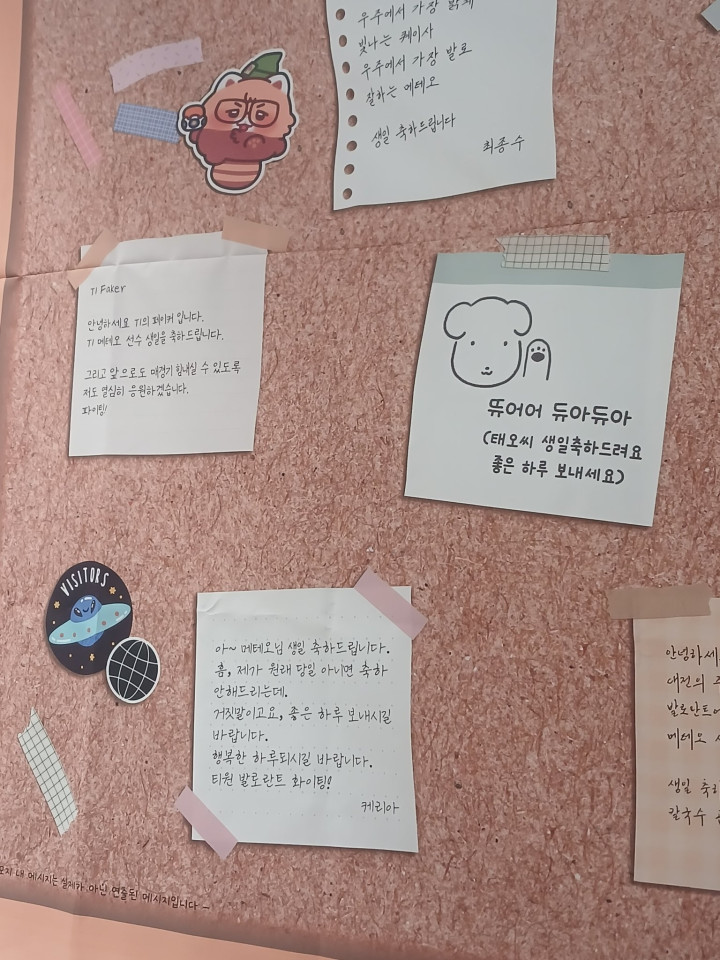 우주에서 가장
빛나는 퀘이사
우주에서 가장 발로
잘하는 메테오
생일 축하드립니다
최종수
T1 Faker
안녕하세요 T1의 페이커 입니다.
T1 메테오 선수 생일을 축하드립니다.
그리고 앞으로도 매경기 힘내실 수 있도록
저도 열심히 응원하겠습니다.
화이팅!
뜌어어 듀아듀아
(태오씨 생일축하드려요
좋은 하루 보내세요)
VISITORS
아~ 메테오님 생일 축하드립니다.
흠, 제가 원래 당일 아니면 축하
안해드리는데.
거짓말이고요, 좋은 하루 보내시길
바랍니다.
행복한 하루되시길 바랍니다.
티원 발로란트 화이팅!
케리아
안녕하세
대전의
발로란트
메테오
생일 축하
칼국수
내 메시지는 실제가 아닌 연출된 메시지입니다 —